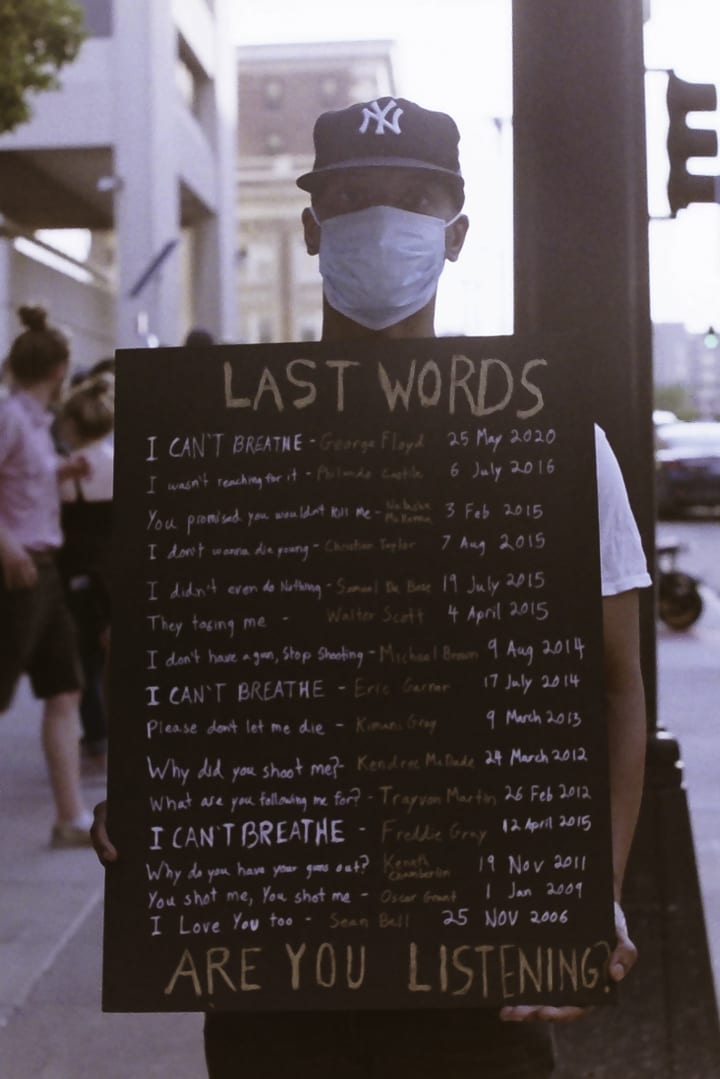 NY
LAST WORDS
I CAN'T BREATHE - George Floyd 25 May 2020
I wasn't reaching for it - Philando Castile 6 July 2016
You promised you wouldn't kill me - Natasha McKenna 3 Feb 2015
I don't wanna die young - Christian Taylor 7 Aug 2015
I didn't even do Nothing - Samuel Du Bose 19 July 2015
They tasing me - Walter Scott 4 April 2015
I don't have a gun, Stop Shooting - Michael Brown 9 Aug 2014
I CAN'T BREATHE - Eric Garner 17 July 2014
Please don't let me die - Kimani Gray 9 March 2013
Why did you shoot me? - Kendrec McDade 24 March 2012
What are you following me for? - Trayvon Martin 26 Feb 2012
I CAN'T BREATHE - Freddie Gray 12 April 2015
Why do you have your guns out? Keneth Chamberlin 19 Nov 2011
You shot me, You shot me - Oscar Grant 1 Jan 2009
I Love You too - Sean Bell 25 NOV 2006
ARE YOU LISTENING?